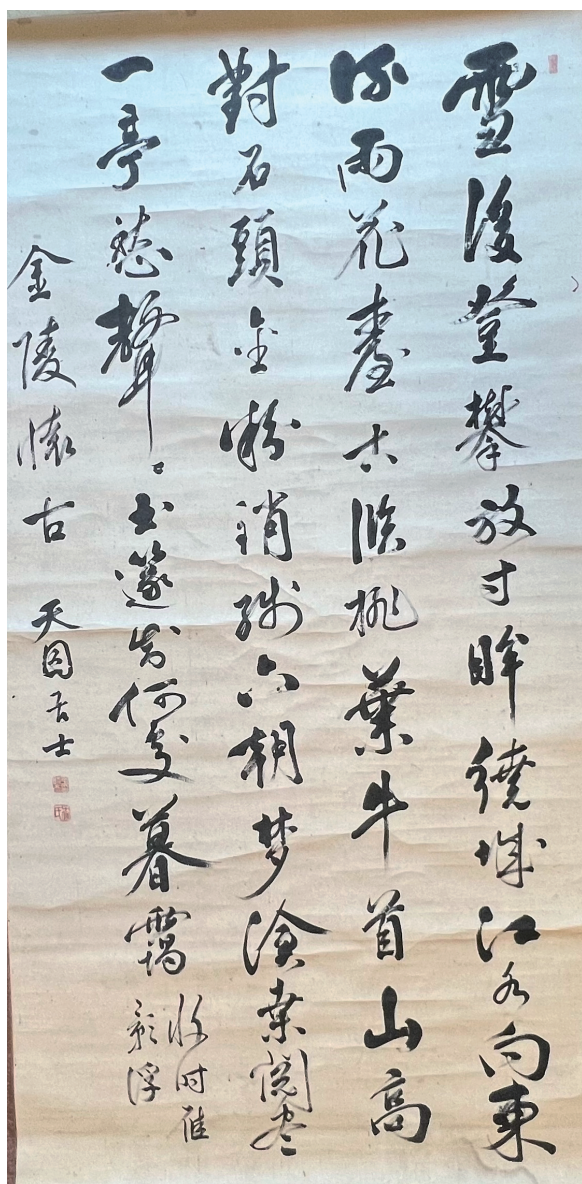 雪後登攀放寸眸繞城江水向東
流雨花臺古臨桃葉牛首山高
對石頭金粉銷殘六朝夢滄桑閱盡
一亭愁聲〻玉篴發何處暮靄
收時雁
影浮
金陵懷古 天居士